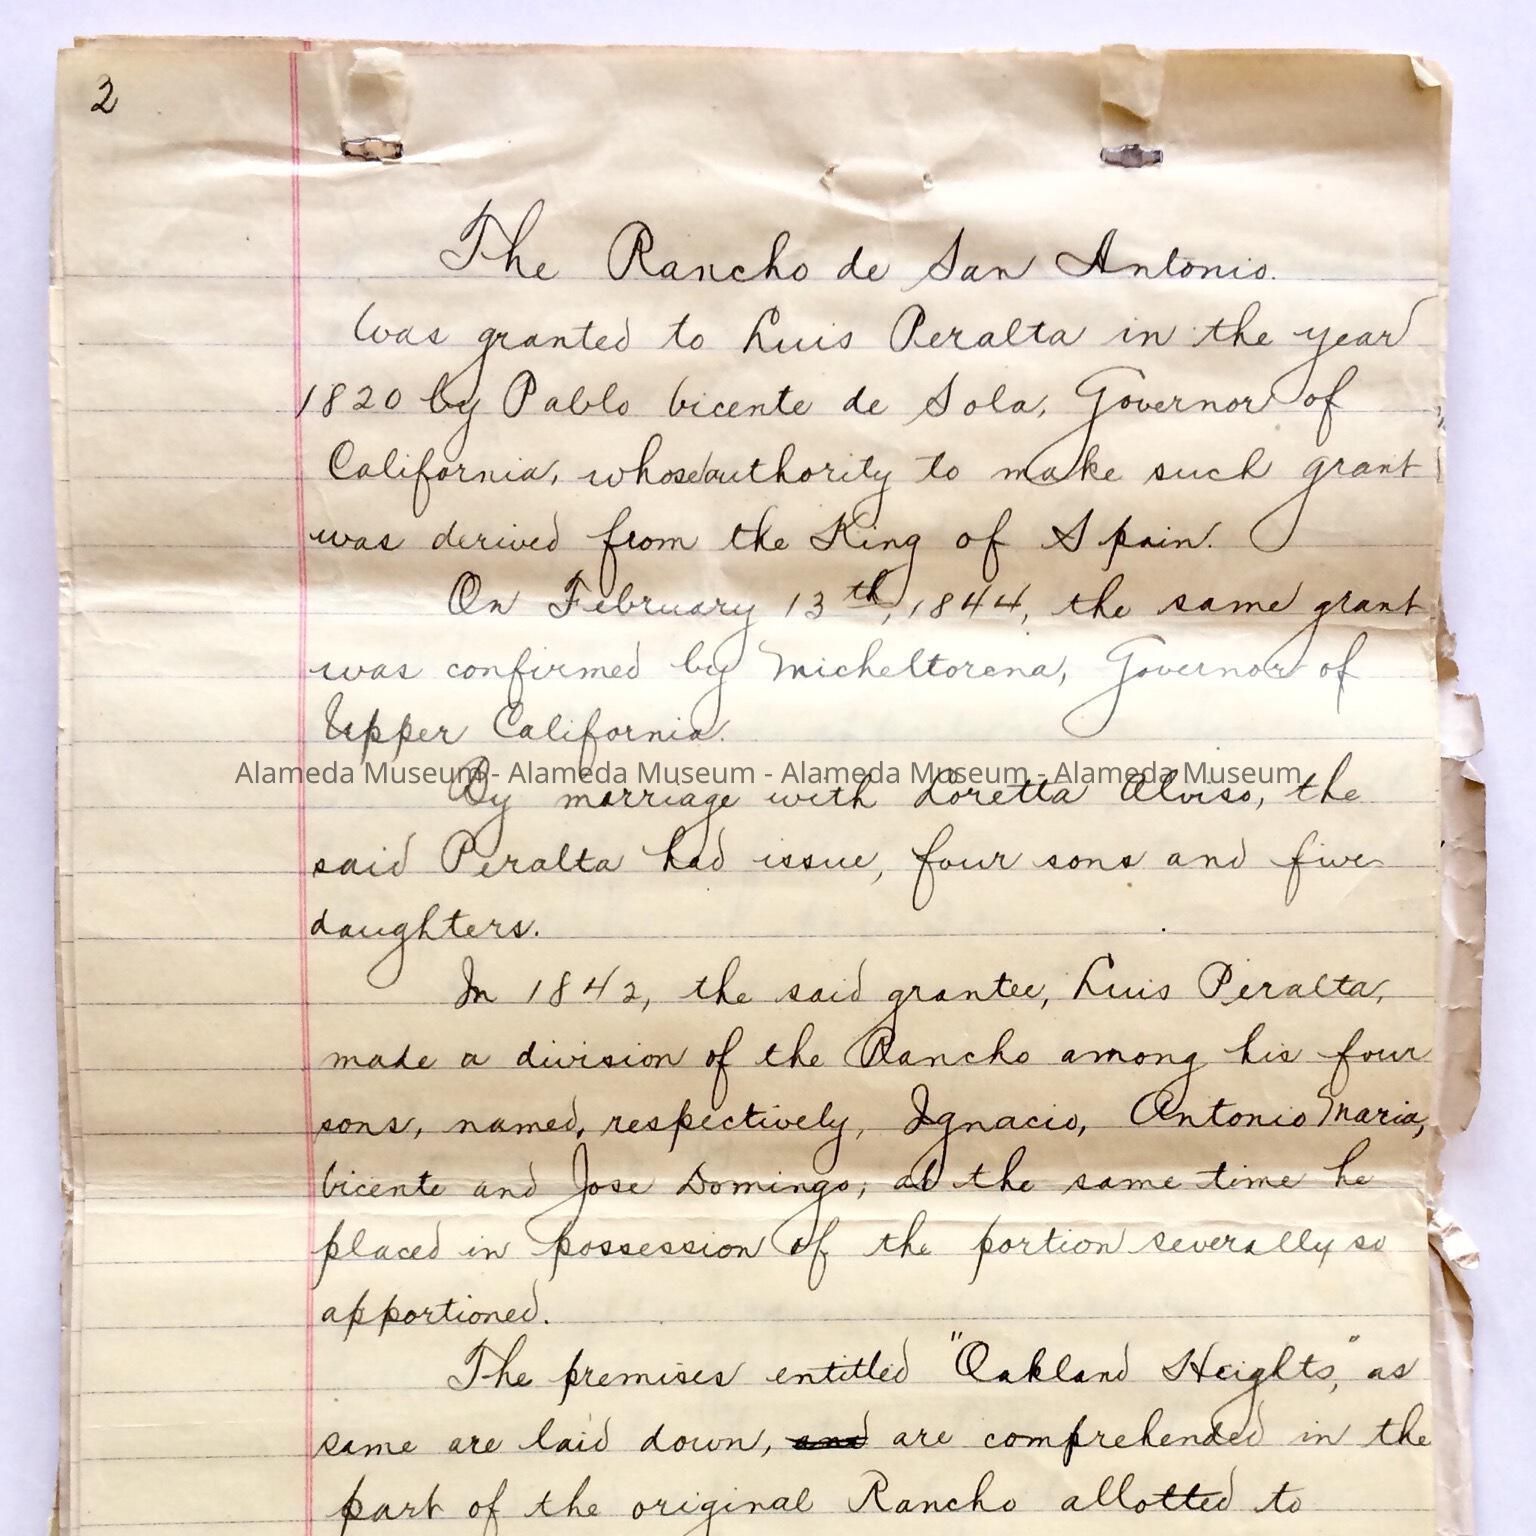 2
The Rancho de San Antonio.
Was granted to Luis Peralta in the year
1820 by Pablo Vicente de Sola, Governor of
California, whose authority to make such grant
was derived from the King of Spain.
On February 13th, 1844, the same grant
was confirmed by Micheltorena, Governor of
Upper California.
Alameda Museum - Alameda Museum - Alameda Museum - Alameda Museum
By marriage with Loretta Alviso, the
said Peralta had issue, four sons and five
daughters.
In 1842, the said grantee, Luis Peralta,
made a division of the Rancho among his four
sons, named, respectively, Ignacio, Antonio Maria,
Vicente and Jose Domingo; at the same time he
placed in possession of the portion severally so
apportioned.
The premises entitled "Oakland Heights," as
same are laid down, and are comprehended in the
part of the original Rancho allotted to